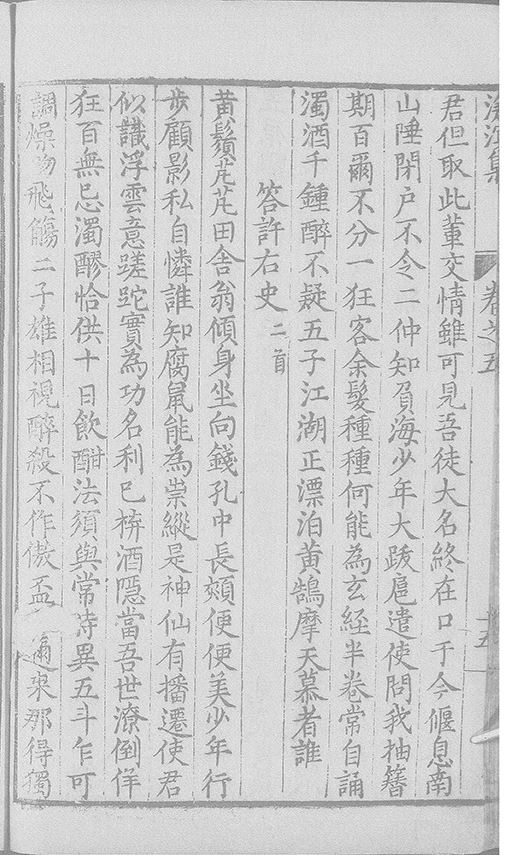 卷之五
君但取此輩交情雖可見吾徒大名終在口于今偃息南
山陲閉戶不令二仲知負海少年大跋扈遣使問我抽簪
期百爾不分一狂客余髮種種何能為玄經半卷常自誦
濁酒千鍾醉不疑五子江湖正漂泊黃鵠摩天慕者誰
答許右史二首
黃鬚芃芃田舍翁傾身坐向錢孔中長頰便便美少年行
步顧影私自憐誰知腐鼠能為祟縱是神仙有播遷使君
似識浮雲意蹉跎實為功名利已拚酒隱當吾世潦倒佯
狂百無忌濁醪恰供十日飲酣法須與常時異五斗乍可
調燥吻飛觴二子雄相視醉殺不作傲盃 邇來那得獨